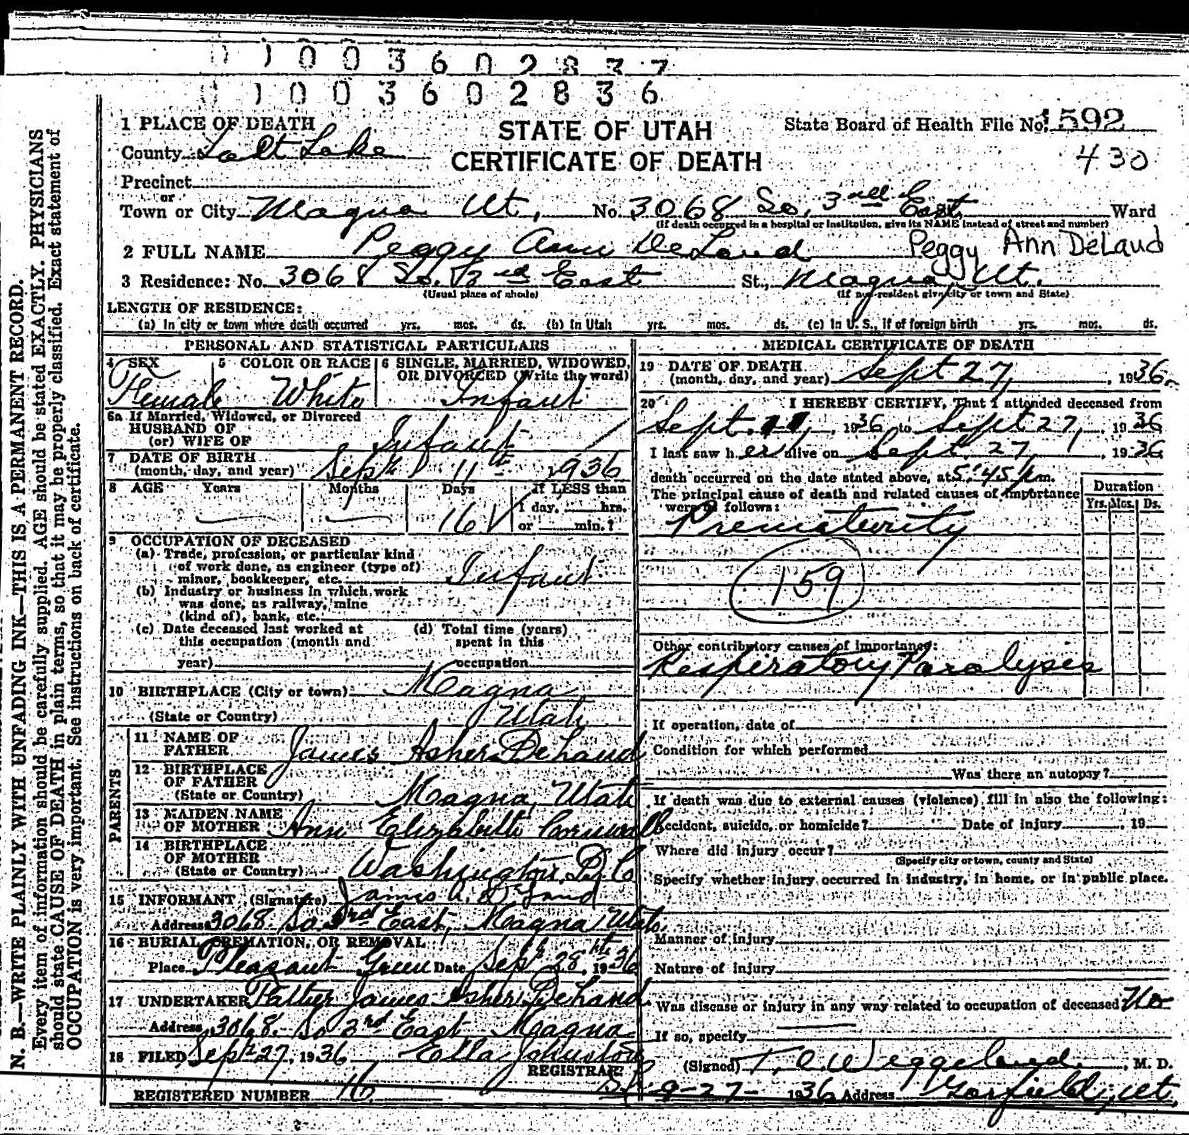 0 1 0 0 3 6 0 2 8 3 7
0 1 0 0 3 6 0 2 8 3 6
N. B.—WRITE PLAINLY WITH UNFADING INK—THIS IS A PERMANENT RECORD.
Every item of information should be carefully supplied. AGE should be stated EXACTLY. PHYSICIANS
should state CAUSE OF DEATH in plain terms, so that it may be properly classified. Exact statement of
OCCUPATION is very important. See instructions on back of certificate.
STATE OF UTAH
CERTIFICATE OF DEATH
State Board of Health File No. 1592
430
1 PLACE OF DEATH
County Salt Lake
Precinct
or
Town or City Magna Ut. No. 3068 So. 3rd East Ward
(If death occurred in a hospital or institution, give its NAME instead of street and number)
2 FULL NAME Peggy Ann DeLand Peggy Ann DeLaud
3 Residence: No. 3068 So. 3rd East St., Magna, Ut.
(Usual place of abode) (If non-resident give city or town and State)
LENGTH OF RESIDENCE:
(a) In city or town where death occurred yrs. mos. ds. (b) In Utah yrs. mos. ds. (c) In U. S., if of foreign birth yrs. mos. ds.
PERSONAL AND STATISTICAL PARTICULARS
4 SEX 5 COLOR OR RACE 6 SINGLE, MARRIED, WIDOWED,
OR DIVORCED (Write the word)
Female White Infant
6a If Married, Widowed, or Divorced
HUSBAND OF
(or) WIFE OF Infant
7 DATE OF BIRTH
(month, day, and year) Sept 11th 1936
8 AGE Years Months Days If LESS than
16 1 day, hrs.
or min.?
9 OCCUPATION OF DECEASED
(a) Trade, profession, or particular kind
of work done, as engineer (type of)
minor, bookkeeper, etc. Infant
(b) Industry or business in which work
was done, as railway, mine
(kind of), bank, etc.
(c) Date deceased last worked at (d) Total time (years)
this occupation (month and spent in this
year) occupation
10 BIRTHPLACE (City or town) Magna
(State or Country) Utah
PARENTS
11 NAME OF
FATHER James Asher DeLand
12 BIRTHPLACE
OF FATHER
(State or Country) Magna, Utah
13 MAIDEN NAME
OF MOTHER Ann Elizabeth Cornwall
14 BIRTHPLACE
OF MOTHER
(State or Country) Washington D.C.
15 INFORMANT (Signature) James A. DeLand
Address 3068 So 3rd East, Magna Utah.
16 BURIAL, CREMATION, OR REMOVAL
Place Pleasant Green Date Sept 28th, 1936
17 UNDERTAKER Father James Asher DeLand
Address 3068 So 3rd East Magna
18 FILED Sept 27, 1936 Ella Johnston
REGISTRAR
REGISTERED NUMBER 16
MEDICAL CERTIFICATE OF DEATH
19 DATE OF DEATH
(month, day, and year) Sept 27, 1936
20 I HEREBY CERTIFY, That I attended deceased from
Sept. 11, 1936 to Sept 27, 1936
I last saw her alive on Sept. 27, 1936
death occurred on the date stated above, at 5:45 p.m.
The principal cause of death and related causes of importance
were as follows:
Duration
Yrs. Mos. Ds.
Prematurity
159
Other contributory causes of importance:
Respiratory Paralysis
If operation, date of
Condition for which performed
Was there an autopsy?
If death was due to external causes (violence), fill in also the following:
Accident, suicide, or homicide? Date of injury , 19
Where did injury occur?
(Specify city or town, county and State)
Specify whether injury occurred in industry, in home, or in public place.
Manner of injury
Nature of injury
Was disease or injury in any way related to occupation of deceased No
If so, specify
(Signed) T. C. Weggeland, M. D.
9-27-1936 Address Garfield, Ut.